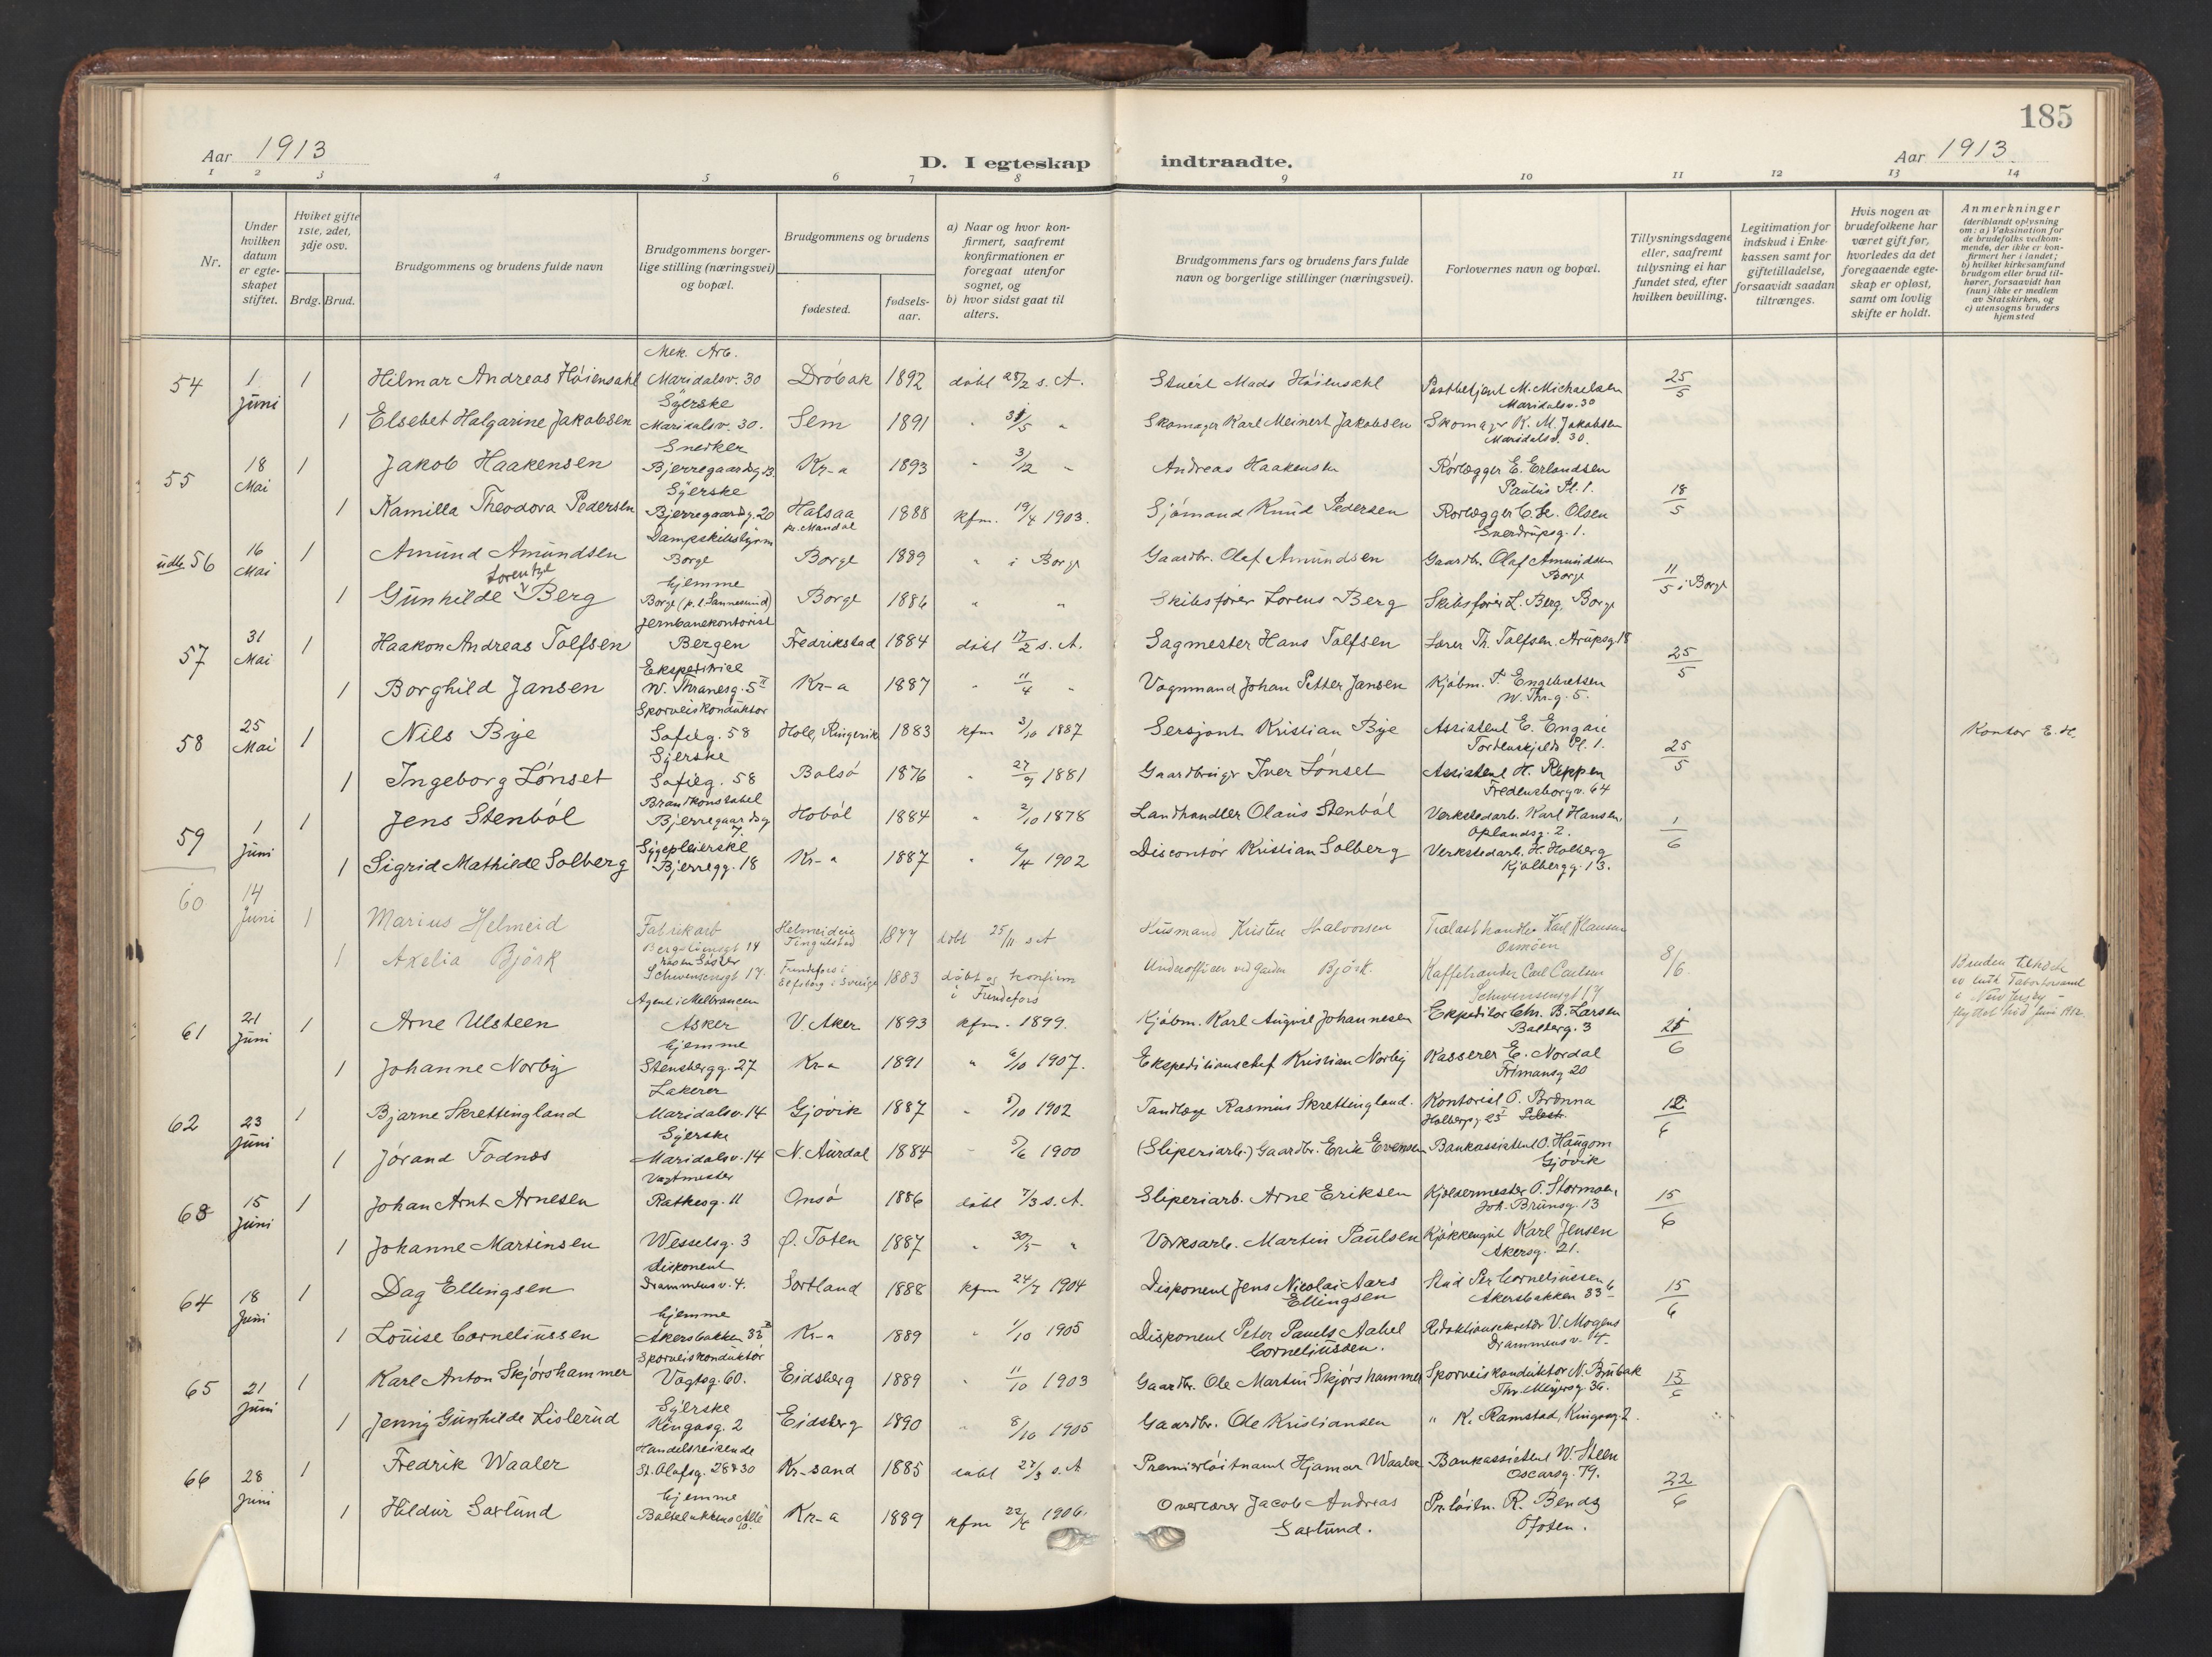 185
Aar 1913
D. I egteskap indtraadte.
Aar 1913
1 2 3 4 5 6 7 8 9 10 11 12 13 14
Nr.
Under hvilken datum er egteskapet stiftet.
Hviket gifte 1ste, 2det, 3dje osv.
Brdg. Brud.
Brudgommens og brudens fulde navn
Brudgommens borgerlige stilling (næringsvei) og bopæl.
Brudgommens og brudens
fødested.
fødselsaar.
a) Naar og hvor konfirmert, saafremt konfirmationen er foregaat utenfor sognet, og
b) hvor sidst gaat til alters.
Brudgommens fars og brudens fars fulde navn og borgerlige stillinger (næringsvei).
Forlovernes navn og bopæl.
Tillysningsdagene eller, saafremt tillysning ei har fundet sted, efter hvilken bevilling.
Legitimation for indskud i Enkekassen samt for giftetilladelse, forsaavidt saadan tiltrænges.
Hvis nogen av brudefolkene har været gift før, hvorledes da det foregaaende egteskap er opløst, samt om lovlig skifte er holdt.
Anmerkninger (deriblandt oplysning om: a) Vaksination for de brudefolks vedkommende, der ikke er konfirmert her i landet; b) hvilket kirkesamfund brudgom eller brud tilhører, forsaavidt han (hun) ikke er medlem av Statskirken, og c) utensogns bruders hjemsted
54 1 Juni 1 Hilmar Andreas Høiensahl Mek. Arb. Maridalsv. 30 Drøbak 1892 døbt 28/2 s. A. Stuert Mads Høiensahl Postbetjent M. Michaelsen Maridalsv. 30 25/5
1 Elsebet Halgarine Jakobsen Syerske Maridalsv. 30. Sem 1891 " 31/5 " Skomager Karl Meinert Jakobsen Skomager K. M. Jakobsen Maridalsv. 30.
55 18 Mai 1 Jakob Haakensen Snedker Bjerregaardsg. 13. Kr-a 1893 " 3/12 " Andreas Haakensen Rørlægger E. Erlandsen Paulus Pl. 1. 18/5
1 Kamilla Theodora Pedersen Syerske Bjerregaardsg. 20 Halsaa pr. Mandal 1888 kfm. 19/4 1903. Sjømand Knud Pedersen Rørlægger C. H. Olsen Sverdrupsg. 1.
udb. 56 16 Mai 1 Amund Amundsen Dampskibsstyrm Borge Borge 1889 " i Borge Gaardbr. Olaf Amundsen Gaardbr. Olaf Amundsen Borge 11/5 i Borge
1 Gunhilde Lorentze Berg hjemme Borge (p. t. Sannesund) Borge 1886 " " Skibsfører Lorens Berg Skibsfører L. Berg, Borge
57 31 Mai 1 Haakon Andreas Tolfsen Jernbanekontorist Bergen Fredrikstad 1884 døbt 17/2 s. A. Sagmester Hans Tolfsen Lærer Th. Tolfsen, Arupsg. 18 25/5
1 Borghild Jansen Ekspeditrice W. Thranesg. 5 II Kr-a 1887 " 11/4 " Vognmand Johan Petter Jansen Kjøbm. T. Engebretsen W. Thr-g. 5.
58 25 Mai 1 Nils Bye Sporveiskonduktør Sofieg. 58 Hole, Ringerik 1883 kfm 3/10 1887 Sersjant Kristian Bye Assistent E. Engan Tordenskjolds Pl. 1. 25/5 Kontor E. H.
1 Ingeborg Lønset Syerske Sofieg. 58 Bolsø 1876 " 27/9 1881 Gaardbruger Iver Lønset Assistent H. Reppen Fredensborgv. 64
59 1 Juni 1 Jens Stenbøl Brandkonstabel Bjerregaardsg 7. Hobøl 1884 " 2/10 1878 Landhandler Olaus Stenbøl Verkstedarb. Karl Hansen, Oplandsg. 2. 1/6
1 Sigrid Mathilde Solberg Sygepleierske Bjerregg. 18 Kr-a 1887 " 6/4 1902 Discontør Kristian Solberg Verkstedarb. H. Holberg Kjølbergg. 13.
60 14 Juni 1 Marius Helmeid Fabrikarb Bergslüensgt 14 Helmeideie Tingelstad 1877 døbt 25/11 s A Husmand Kristen Halvorsen Trælasthandler Karl Klausen Ormøen 8/6
1 Axelia Björk Schwensensgt 17. Frendefors i Elfsborg i Sverige 1883 døbt og konfirm i Frendefors Underofficer ved Garden Björk. Kaffebrænder Carl Carlsen Schwensensgt 17 Bruden tilhører
61 21 Juni 1 Arne Ulsteen Agent i Melbrancen Asker V. Aker 1893 kfm. 1899. Kjøbm. Karl August Johannesen Expeditør Chr. B. Larsen Balderg. 3 21/6
1 Johanne Norby hjemme Stensbergg. 27 Kr-a 1891 " 6/10 1907. Ekspeditionschef Kristian Norby Kasserer E. Nordal Frimansg 20
62 23 Juni 1 Bjarne Skrettingland Lakerer Maridalsv. 14 Gjøvik 1887 " 5/10 1902 Tandlæge Rasmus Skrettingland. Kontorist O. Brønna Holbergsg 25 12/6
1 Jørand Fodnæs Syerske Maridalsv. 14 N. Aurdal 1884 " 5/6 1900 (Sliperiarb.) Gaardbr. Erik Evensen Bankassistent O. Haugom Gjøvik
63 15 Juni 1 Johan Arnt Arnesen Vagtmester Rathkesg. 11 Onsø 1886 døbt 7/3 s. A. Sliperiarb. Arne Eriksen Kjelsermester O. Stormoen, Joh. Brunsg. 13 15/6
1 Johanne Martinsen Wesselsg. 3 Ø. Toten 1887 " 30/5 " Værksarb. Martin Paulsen Kjøkkengut Karl Jensen Akersg. 21.
64 18 Juni 1 Dag Ellingsen disponent Drammensv. 4. Sortland 1888 kfm 24/7 1904 Disponent Jens Nicolai Aars Ellingsen Stud Per Corneliussen Akersbakken 33 15/6
1 Louise Corneliussen hjemme Akersbakken 33 Kr-a 1889 " 1/10 1905 Disponent Peter Pauels Aabel Corneliussen. Redaktionsekretær V. Mogens Drammensv. 4.
65 21 Juni 1 Karl Anton Skjørshammer Sporveiskonduktør Vogtsg. 60. Eidsberg 1889 " 11/10 1903 Gaardbr. Ole Martin Skjørshammer Sporveiskonduktør N. Brubak Thv. Meyersg 36. 15/6
1 Jenny Gunhilde Lislerud Syerske Kingosg. 2 Eidsberg 1890 " 8/10 1905 Gaardbr. Ole Kristiansen " K. Ramstad, Kingosg. 2.
66 28 Juni 1 Fredrik Waaler Handelsreisende St. Olafsg. 28 & 30 Kr-sand 1885 døbt 27/3 s. A Premierløitnant Hjamar Waaler Bankassistent W. Steen Oscarsg. 79. 22/6
1 Hildur Saxlund hjemme Balselukkens Allé 10. Kr-a 1889 kfm 22/4 1906. Overlærer Jacob Andreas Saxlund. Pr. løitn. R. Bendz Ofoten.